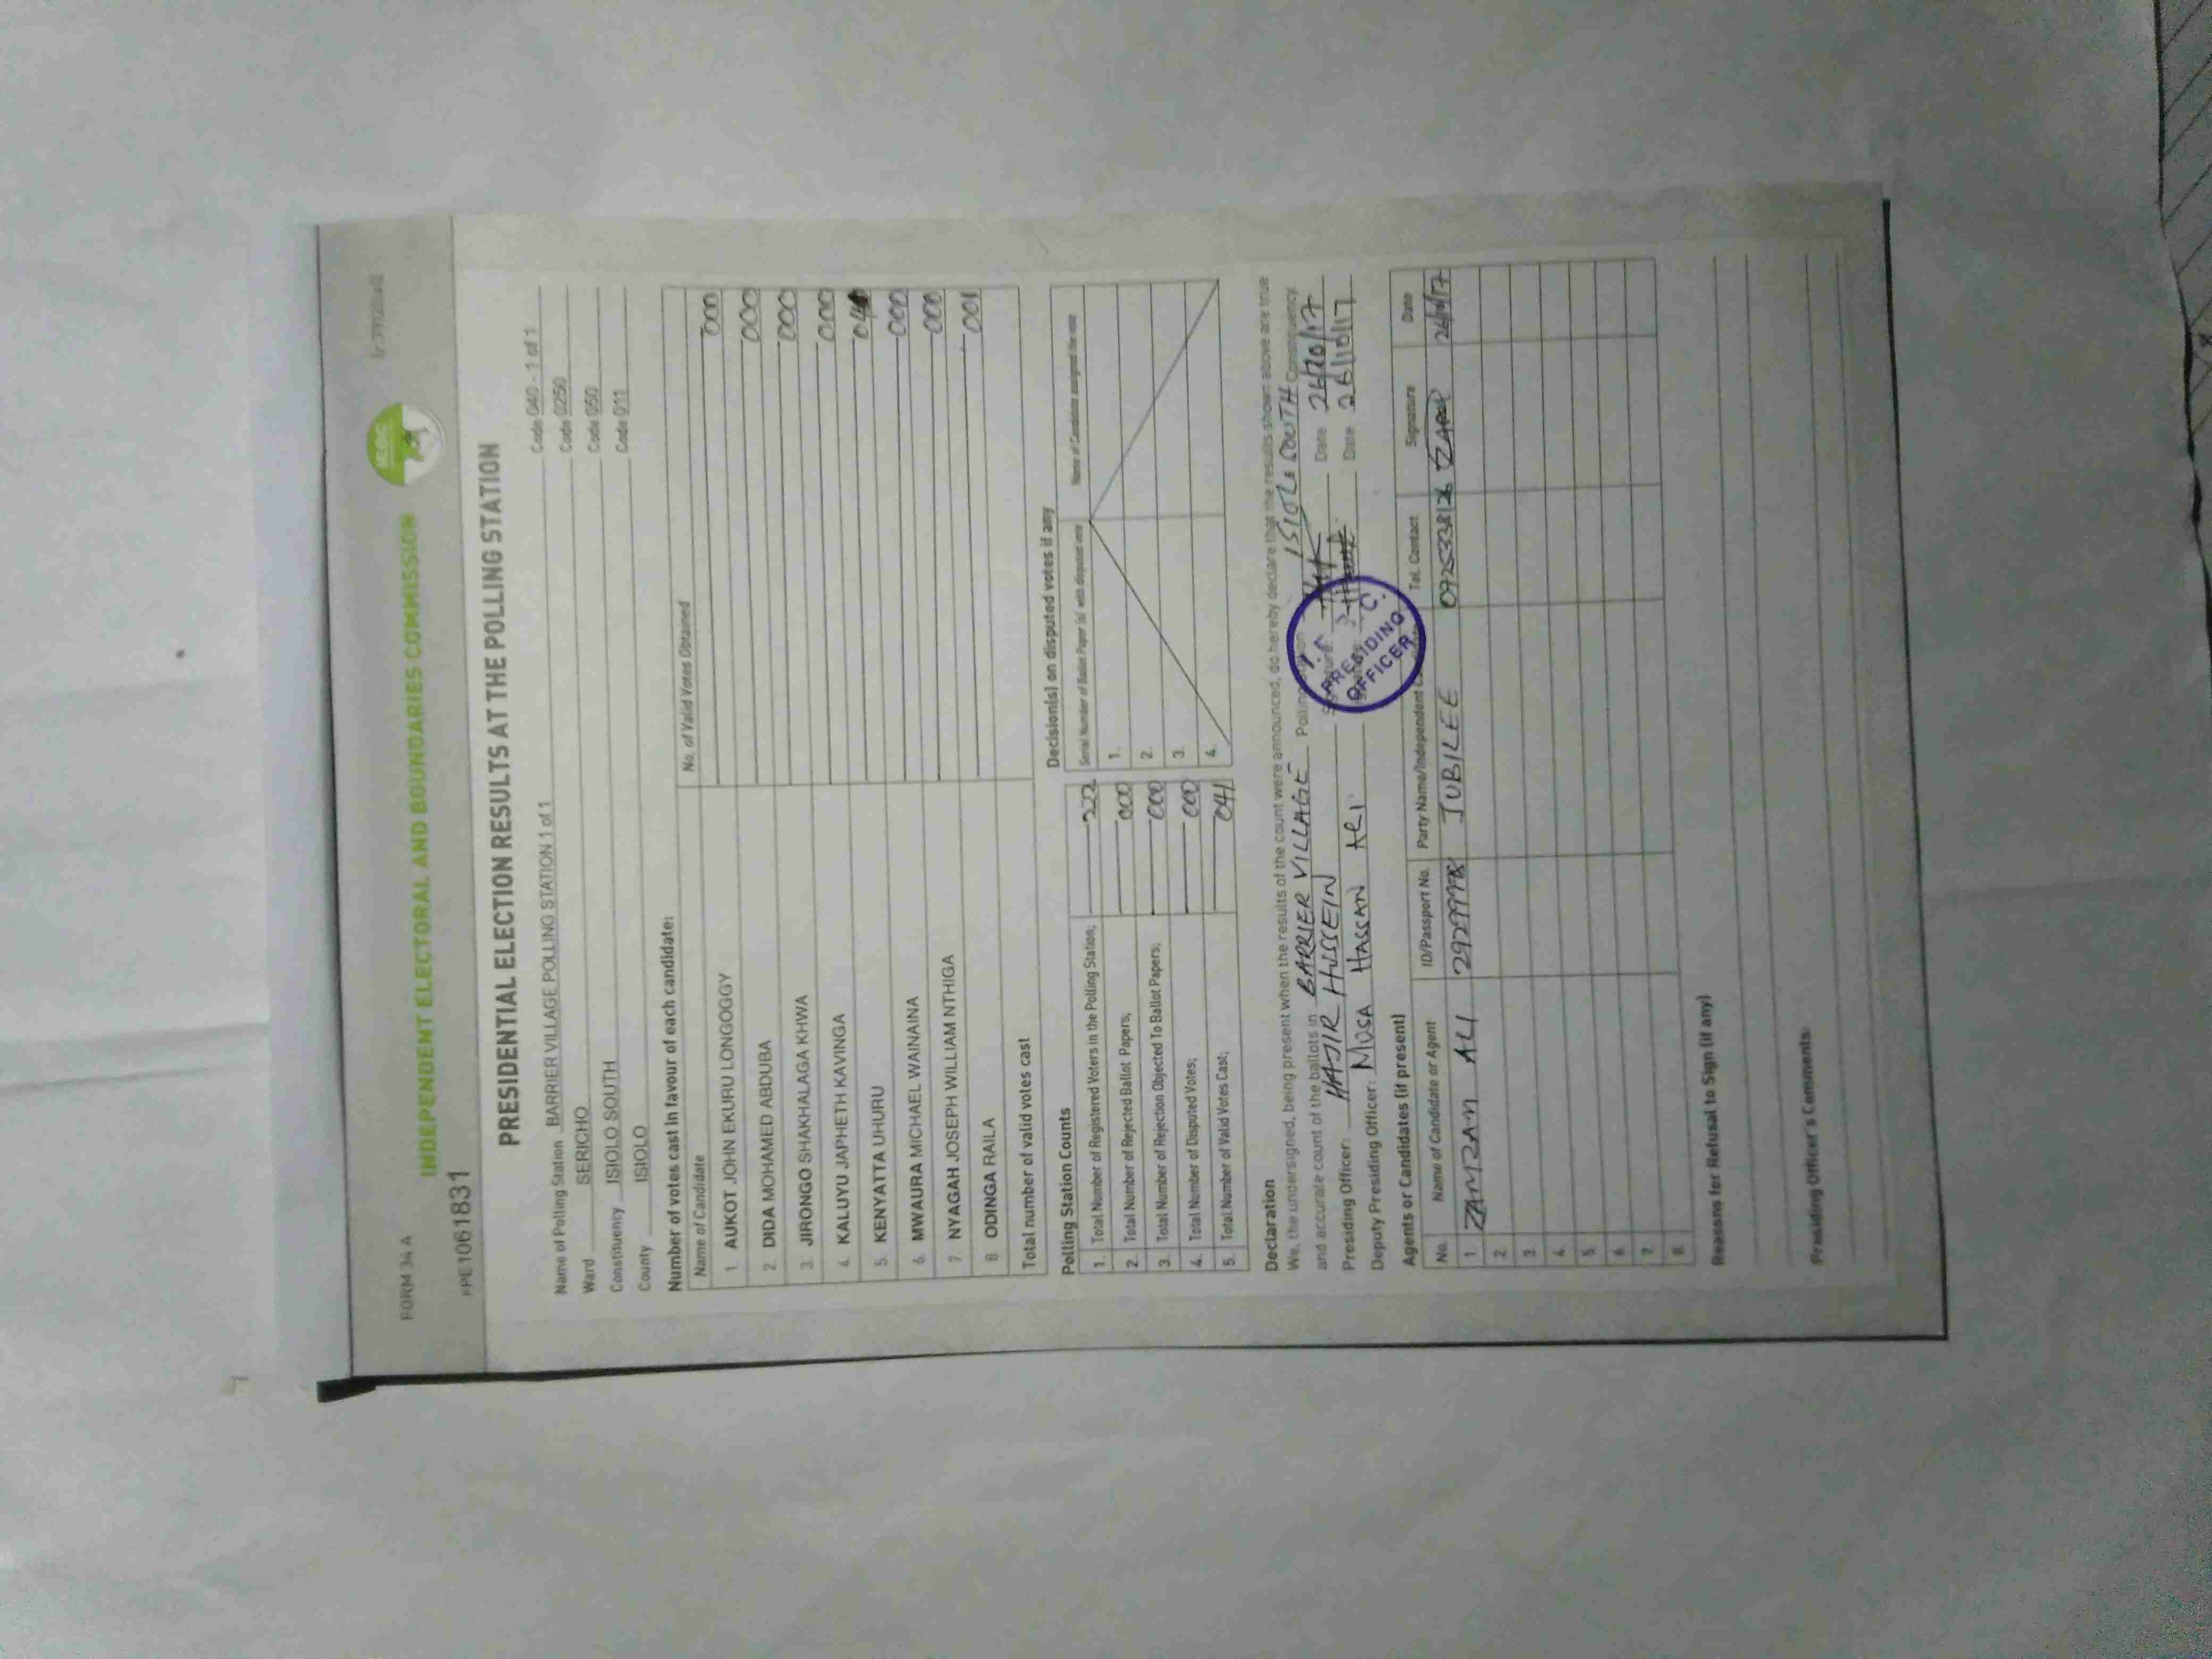 FORM 34 A
INDEPENDENT ELECTORAL AND BOUNDARIES COMMISSION
IEBC
PPE1061831
PRESIDENTIAL ELECTION RESULTS AT THE POLLING STATION
Name of Polling Station BARRIER VILLAGE POLLING STATION 1 of 1 Code 040 - 1 of 1
Ward SERICHO Code 0250
Constituency ISIOLO SOUTH Code 050
County ISIOLO Code 011
Number of votes cast in favour of each candidate:
Name of Candidate No. of Valid Votes Obtained
1. AUKOT JOHN EKURU LONGOGGY 000
2. DIDA MOHAMED ABDUBA 000
3. JIRONGO SHAKHALAGA KHWA 000
4. KALUYU JAPHETH KAVINGA 000
5. KENYATTA UHURU
6. MWAURA MICHAEL WAINAINA 000
7. NYAGAH JOSEPH WILLIAM NTHIGA 000
8 ODINGA RAILA 001
Total number of valid votes cast
Polling Station Counts
1. Total Number of Registered Voters in the Polling Station; 222
2. Total Number of Rejected Ballot Papers; 000
3. Total Number of Rejection Objected To Ballot Papers; 000
4. Total Number of Disputed Votes; 000
5. Total Number of Valid Votes Cast; 041
Decision(s) on disputed votes if any
Serial Number of Ballot Paper (s) with disputed vote Name of Candidate assigned the vote
1.
2.
3.
4.
Declaration
We, the undersigned, being present when the results of the count were announced, do hereby declare that the results shown above are true
and accurate count of the ballots in BARRIER VILLAGE Polling ISIOLO SOUTH Constituency.
Presiding Officer: HAJIR HUSSEIN Date 26/10/17
Deputy Presiding Officer: MUSA HASSAN ALI Date 26/10/17
PRESIDING OFFICER
Agents or Candidates (if present)
No. Name of Candidate or Agent ID/Passport No. Party Name/Independent Tel. Contact Signature Date
1. ZAMZAM ALI JUBILEE 26/10/17
2.
3.
4.
5.
6.
7.
8.
Reasons for Refusal to Sign (if any)
Presiding Officer's Comments: